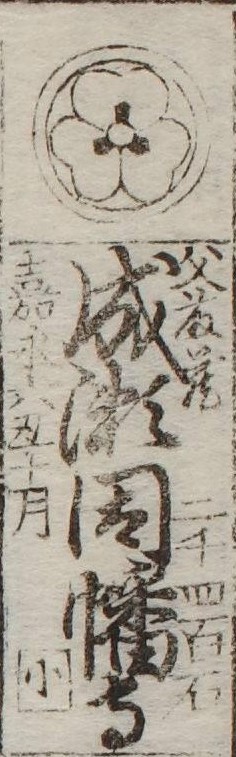 父荻萑
二千四百石
成瀬因幡守
嘉永六丑十月
小